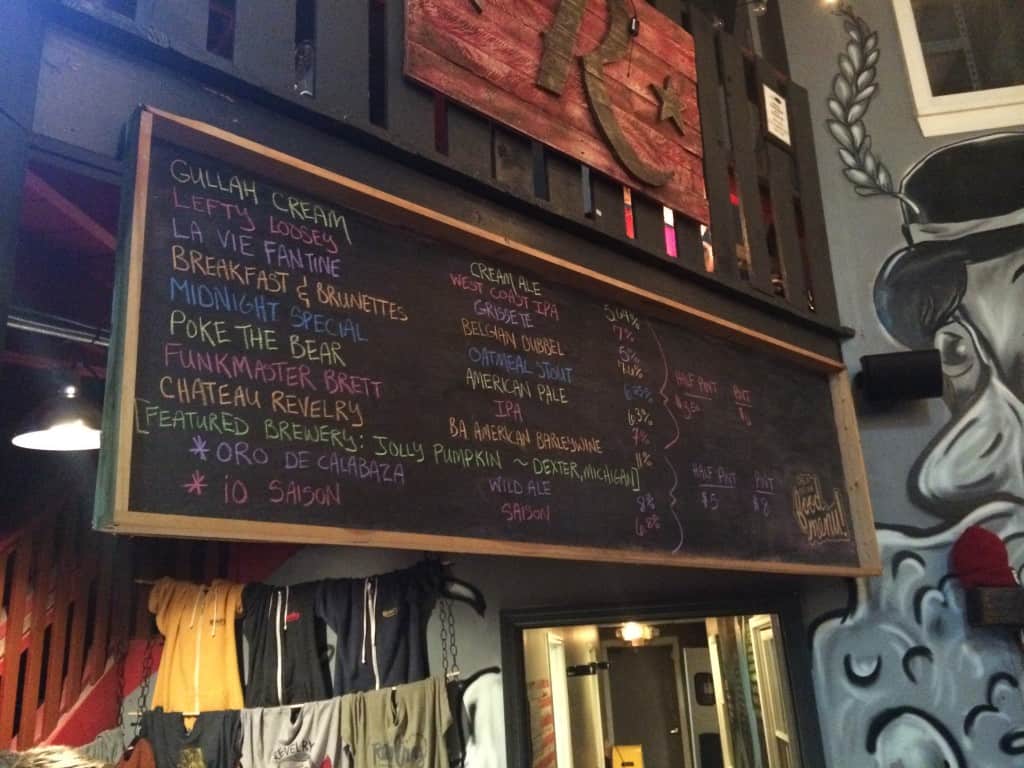 R
GULLAH CREAM CREAM ALE
LEFTY LOOSEY WEST COAST IPA 7%
LA VIE FANTINE GRISSETE 5%
BREAKFAST & BRUNETTES BELGIAN DUBBEL
MIDNIGHT SPECIAL OATMEAL STOUT
POKE THE BEAR AMERICAN PALE 6.3%
FUNKMASTER BRETT IPA 7%
CHATEAU REVELRY BA AMERICAN BARLEYWINE 11%
HALF PINT PINT
[FEATURED BREWERY: JOLLY PUMPKIN ~ DEXTER, MICHIGAN]
* ORO DE CALABAZA WILD ALE 8%
* iO SAISON SAISON 6.8%
HALF PINT PINT
$5 $8
food menu!
REVELRY